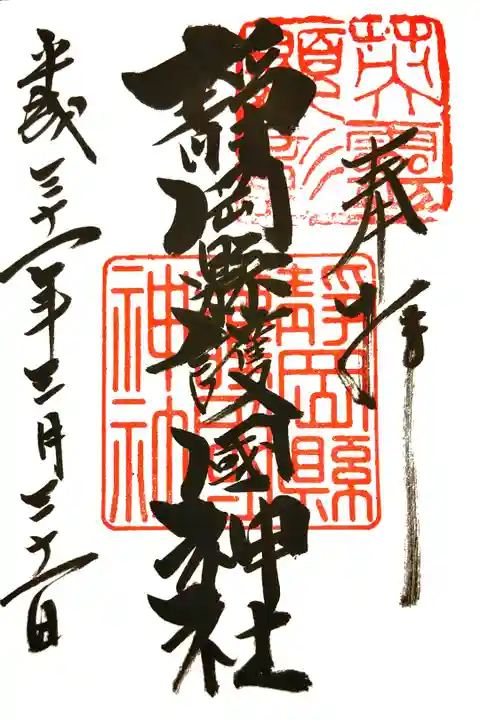 奉拝
英霊
顕彰
靜岡縣護國神社
靜岡縣
護國
神社
平成三十一年三月三十一日